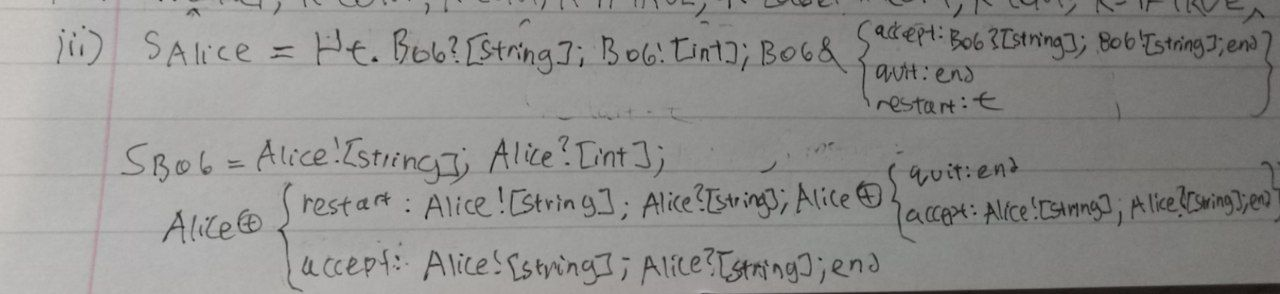 iii) SAlice = μt. Bob?[string]; Bob![int]; Bob& { accept: Bob?[string]; Bob![string]; end
quit: end
restart: t }
SBob = Alice![string]; Alice?[int];
Alice⊕ { restart: Alice![string]; Alice?[string]; Alice⊕ { quit: end
accept: Alice![string]; Alice?[string]; end }
accept: Alice![string]; Alice?[string]; end